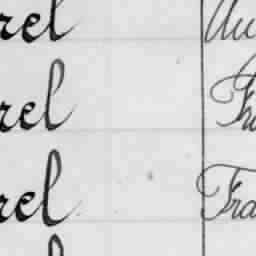 rel Au
rel Fr
rel Fra